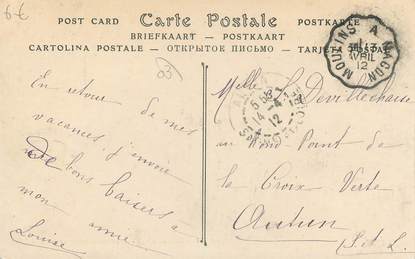 6€
POST CARD Carte Postale POSTKARTE
BRIEFKAART - POSTKAART
CARTOLINA POSTALE - ОТКРЫТОЕ ПИСЬМО - TARJETA POSTAL
MOULINS A MACON
AVRIL
12
En retour de mes
vacances j'envoie
bons baisers à
mon amie
Louise
Melle Devillechaise
au Rond Point de
la Croix Verte
Autun
S. et L.
14 - 4
12